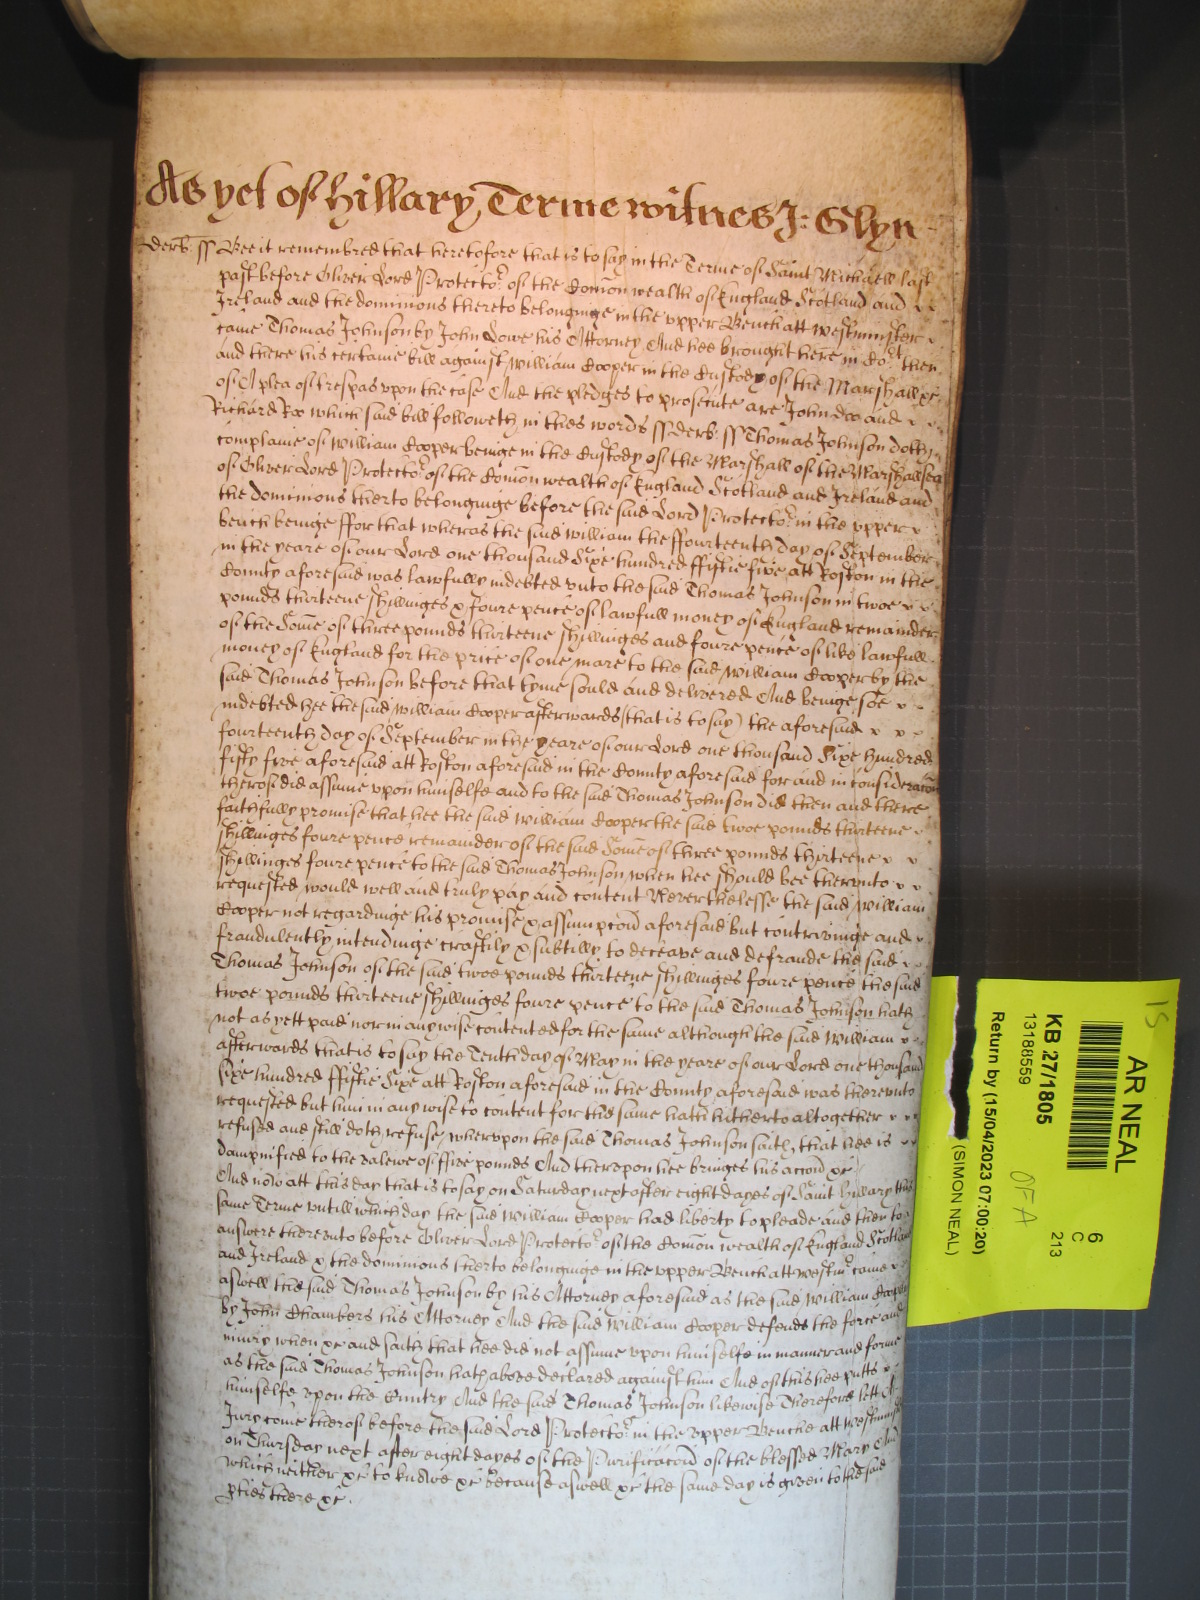 As yet of Hillary Terme witnes J: Glyn
Derb: ss Bee it remembred that heretofore that is to say in the Terme of Saint Michaell last
past before Oliver Lord Protector of the Comon wealth of England Scotland and
Ireland and the dominions thereto belonginge in the upper Bench att Westminster
came Thomas Johnson by John Lowe his Attorney And hee brought here in Cort then
and there his certaine bill against William Cooper in the Custody of the Marshall &c
of A plea of trespas upon the case And the pledges to prosecute are John doo and
Richard Roo which said bill followeth in theis words ss Derb: ss Thomas Johnson doth
complaine of William Cooper beinge in the Custody of the Marshall of the Marshallsea
of Oliver Lord Protector of the Comon wealth of England Scotland and Ireland and
the dominions therto belonginge before the said Lord Protector in the upper
bench beinge ffor that wheras the said William the ffourteenth day of September
in the yeare of our Lord one thousand Sixe hundred ffiftie five att Roston in the
County aforesaid was lawfully indebted unto the said Thomas Johnson in twoe
pounds thirteene shillinges & foure pence of lawfull money of England remainder
of the Some of three pounds thirteene shillinges and foure pence of like lawfull
money of England for the price of one mare to the said William Cooper by the
said Thomas Johnson before that tyme sould and delivered And beinge soe
indebted hee the said William Cooper afterwards (that is to say) the aforesaid
fourteenth day of September in the yeare of our Lord one thousand Sixe hundred
fifty five aforesaid att Roston aforesaid in the County aforesaid for and in consideracon
therof did assume upon himselfe and to the said Thomas Johnson did then and there
faithfully promise that hee the said William Cooper the said twoe pounds thirteene
shillinges foure pence remainder of the said Some of three pounds thirteene
shillinges foure pence to the said Thomas Johnson when hee should bee therunto
requested would well and truly pay and content Neverthelesse the said William
Cooper not regardinge his promise & assumpcon aforesaid but contrivinge and
fraudulently intendinge craftily & subtilly to deceave and defraude the said
Thomas Johnson of the said twoe pounds thirteene shillinges foure pence the said
twoe pounds thirteene shillinges foure pence to the said Thomas Johnson hath
not as yett paid nor in any wise contented for the same although the said William
afterwards that is to say the Tenth day of May in the yeare of our Lord one thousand
sixe hundred ffiftie Sixe att Roston aforesaid in the County aforesaid was thereunto
requested but him in any wise to content for the same hath hitherto altogether
refused and still doth refuse wherupon the said Thomas Johnson saith, that hee is
dampnified to the valewe of ffive pounds And therupon hee bringes his accon &c
And now att this day that is to say on Saturday next after eight dayes of Saint Hillary this
same Terme untill which day the said William Cooper had liberty to pleade and then to
answere thereunto before Oliver Lord Protector of the Comon wealth of England Scotland
and Ireland & the dominions therto belonginge in the upper Bench att Westmr came
aswell the said Thomas Johnson by his Attorney aforesaid as the said William Cooper
by John Chambers his Attorney And the said William Cooper defends the force and
iniury when &c and saith that hee did not assume upon himselfe in manner and forme
as the said Thomas Johnson hath above declared against him And of this hee putts
himselfe upon the Cuntry And the said Thomas Johnson likewise Therefore lett A
Jury come therof before the said Lord Protector in the upper Benche att Westminster
on Thursday next after eight dayes of the Purificacon of the blessed Mary And
which neither &c to knowe &c Because aswell &c the same day is given to the said
pties there &c.
15
AR NEAL
KB 27/1805
13188559
Return by (15/04/2023 07:00:20)
(SIMON NEAL)
6
C
213
OFA